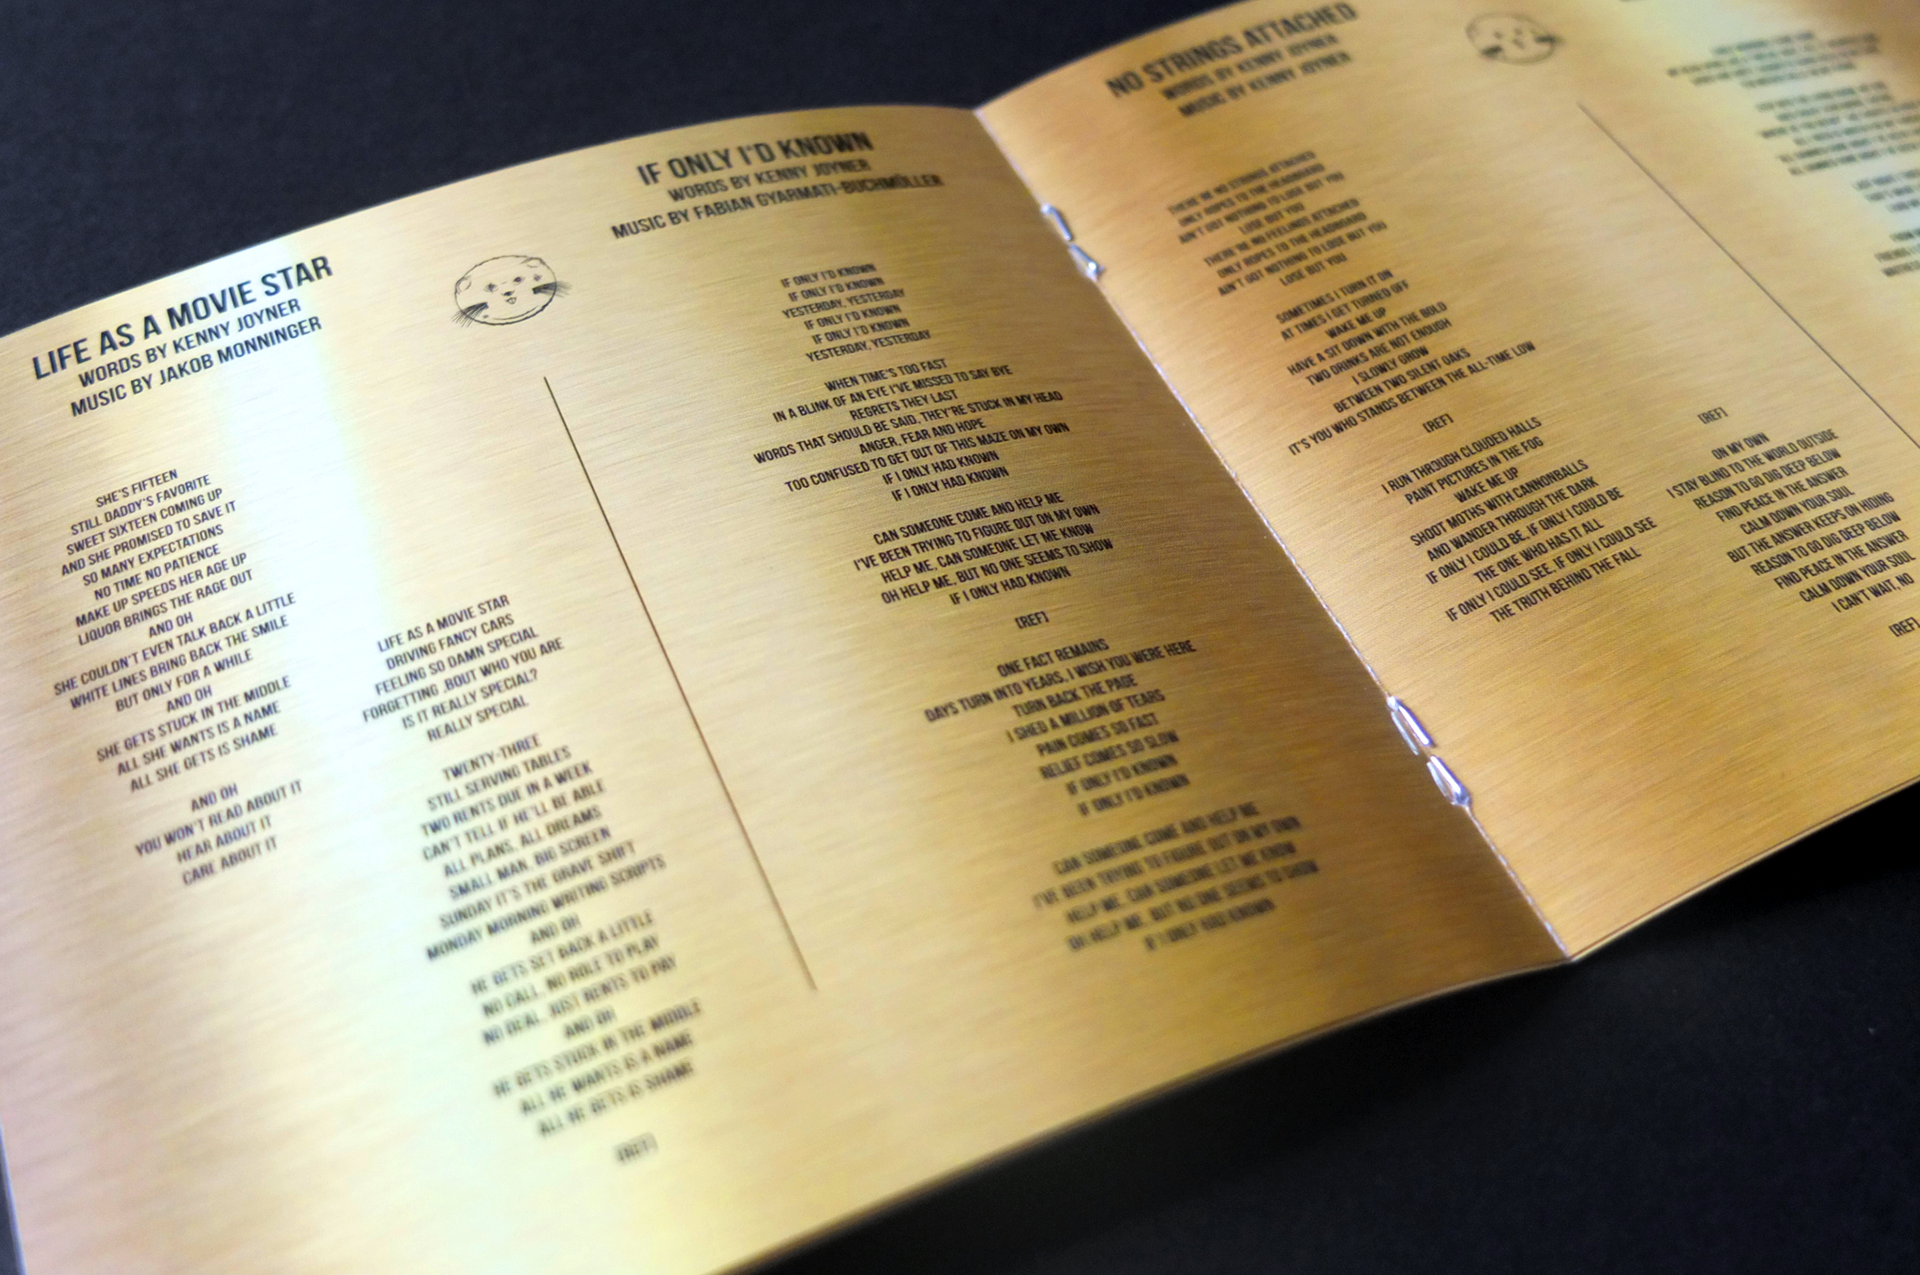 LIFE AS A MOVIE STAR
WORDS BY KENNY JOYNER
MUSIC BY JAKOB MONNINGER
SHE'S FIFTEEN
STILL DADDY'S FAVORITE
SWEET SIXTEEN COMING UP
AND SHE PROMISED TO SAVE IT
SO MANY EXPECTATIONS
NO TIME NO PATIENCE
MAKE UP SPEEDS HER AGE UP
LIQUOR BRINGS THE RAGE OUT
AND OH
SHE COULDN'T EVEN TALK BACK A LITTLE
WHITE LINES BRING BACK THE SMILE
BUT ONLY FOR A WHILE
AND OH
SHE GETS STUCK IN THE MIDDLE
ALL SHE WANTS IS A NAME
ALL SHE GETS IS SHAME
AND OH
YOU WON'T READ ABOUT IT
HEAR ABOUT IT
CARE ABOUT IT
LIFE AS A MOVIE STAR
DRIVING FANCY CARS
FEELING SO DAMN SPECIAL
FORGETTING .BOUT WHO YOU ARE
IS IT REALLY SPECIAL?
REALLY SPECIAL
TWENTY-THREE
STILL SERVING TABLES
TWO RENTS DUE IN A WEEK
CAN'T TELL IF HE'LL BE ABLE
ALL PLANS, ALL DREAMS
SMALL MAN, BIG SCREEN
SUNDAY IT'S THE GRAVE SHIFT
MONDAY MORNING WRITING SCRIPTS
AND OH
HE GETS SET BACK A LITTLE
NO CALL, NO ROLE TO PLAY
NO DEAL, JUST RENTS TO PAY
AND OH
HE GETS STUCK IN THE MIDDLE
ALL HE WANTS IS A NAME
ALL HE GETS IS SHAME
[REF]
IF ONLY I'D KNOWN
WORDS BY KENNY JOYNER
MUSIC BY FABIAN GYARMATI-BUCHMÜLLER
IF ONLY I'D KNOWN
IF ONLY I'D KNOWN
YESTERDAY, YESTERDAY
IF ONLY I'D KNOWN
IF ONLY I'D KNOWN
YESTERDAY, YESTERDAY
WHEN TIME'S TOO FAST
IN A BLINK OF AN EYE I'VE MISSED TO SAY BYE
REGRETS THEY LAST
WORDS THAT SHOULD BE SAID, THEY'RE STUCK IN MY HEAD
ANGER, FEAR AND HOPE
TOO CONFUSED TO GET OUT OF THIS MAZE ON MY OWN
IF I ONLY HAD KNOWN
IF I ONLY HAD KNOWN
CAN SOMEONE COME AND HELP ME
I'VE BEEN TRYING TO FIGURE OUT ON MY OWN
HELP ME, CAN SOMEONE LET ME KNOW
OH HELP ME, BUT NO ONE SEEMS TO SHOW
IF I ONLY HAD KNOWN
[REF]
ONE FACT REMAINS
DAYS TURN INTO YEARS, I WISH YOU WERE HERE
TURN BACK THE PAGE
I SHED A MILLION OF TEARS
PAIN COMES SO FAST
RELIEF COMES SO SLOW
IF ONLY I'D KNOWN
IF ONLY I'D KNOWN
CAN SOMEONE COME AND HELP ME
I'VE BEEN TRYING TO FIGURE OUT ON MY OWN
HELP ME, CAN SOMEONE LET ME KNOW
OH HELP ME, BUT NO ONE SEEMS TO SHOW
IF I ONLY HAD KNOWN
NO STRINGS ATTACHED
WORDS BY KENNY JOYNER
MUSIC BY KENNY JOYNER
THERE'RE NO STRINGS ATTACHED
ONLY ROPES TO THE HEADBOARD
AIN'T GOT NOTHING TO LOSE BUT YOU
LOSE BUT YOU
THERE'RE NO FEELINGS ATTACHED
ONLY ROPES TO THE HEADBOARD
AIN'T GOT NOTHING TO LOSE BUT YOU
LOSE BUT YOU
SOMETIMES I TURN IT ON
AT TIMES I GET TURNED OFF
WAKE ME UP
HAVE A SIT DOWN WITH THE BOLD
TWO DRINKS ARE NOT ENOUGH
I SLOWLY GROW
BETWEEN TWO SILENT OAKS
IT'S YOU WHO STANDS BETWEEN THE ALL-TIME LOW
[REF]
I RUN THROUGH CLOUDED HALLS
PAINT PICTURES IN THE FOG
WAKE ME UP
SHOOT MOTHS WITH CANNONBALLS
AND WANDER THROUGH THE DARK
IF ONLY I COULD BE, IF ONLY I COULD BE
THE ONE WHO HAS IT ALL
IF ONLY I COULD SEE, IF ONLY I COULD SEE
THE TRUTH BEHIND THE FALL
[REF]
ON MY OWN
I STAY BLIND TO THE WORLD OUTSIDE
REASON TO GO DIG DEEP BELOW
FIND PEACE IN THE ANSWER
CALM DOWN YOUR SOUL
BUT THE ANSWER KEEPS ON HIDING
REASON TO GO DIG DEEP BELOW
FIND PEACE IN THE ANSWER
CALM DOWN YOUR SOUL
I CAN'T WAIT, NO
[REF]